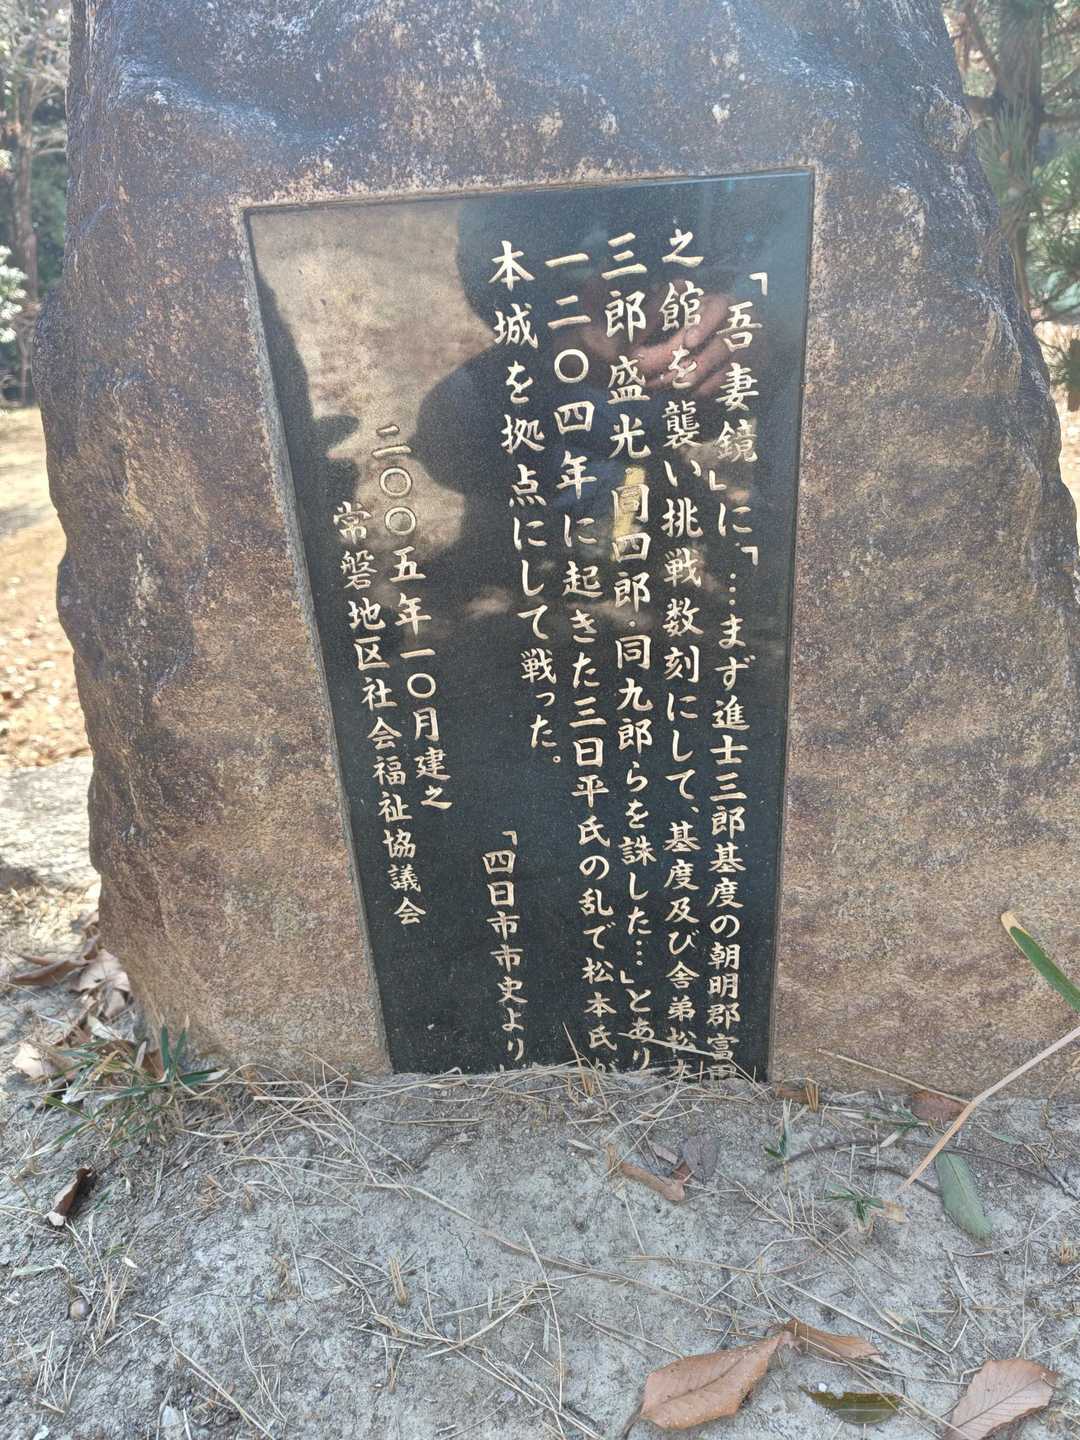 「吾妻鏡」に「…まず進士三郎基度の朝明郡富田
之館を襲い挑戦数刻にして、基度及び舎弟松本
三郎盛光・同四郎・同九郎らを誅した…」とあり
一二〇四年に起きた三日平氏の乱で松本氏が
本城を拠点にして戦った。
「四日市市史より」
二〇〇五年一〇月建之
常磐地区社会福祉協議会